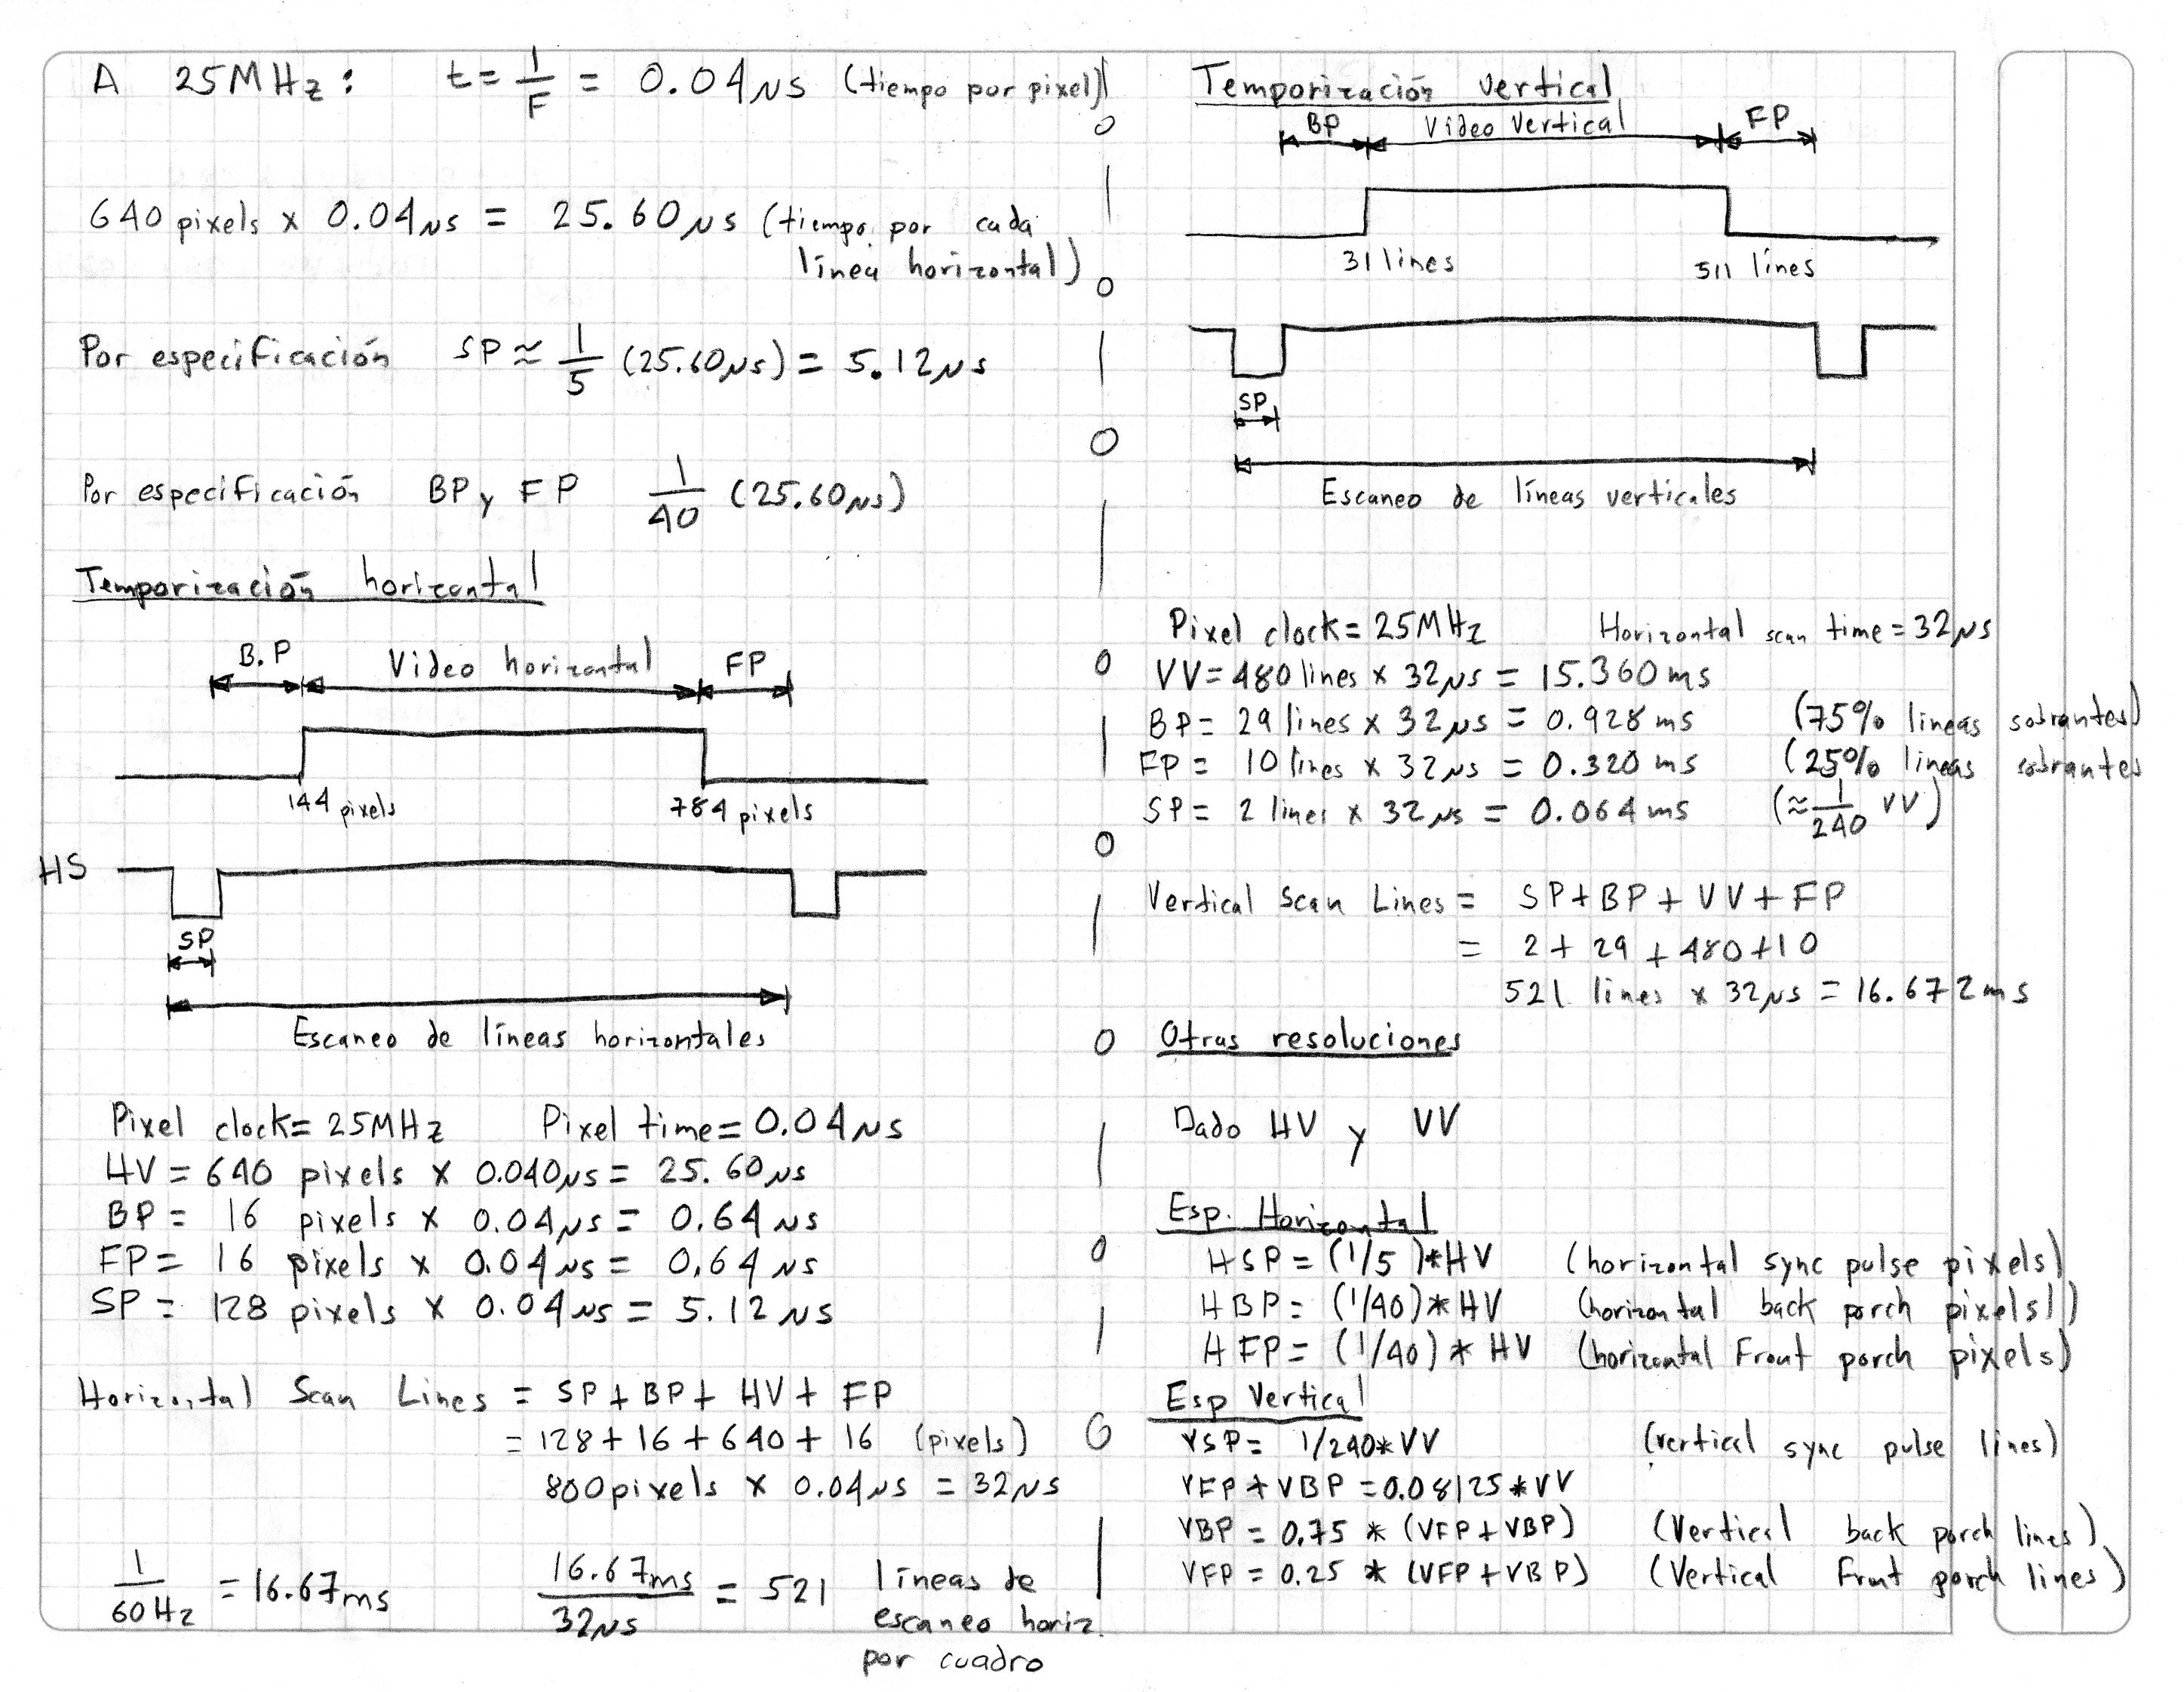 A 25MHz: t = 1/F = 0.04μs (tiempo por pixel)
640 pixels x 0.04μs = 25.60μs (tiempo por cada
línea horizontal)
Por especificación SP ≈ 1/5 (25.60μs) = 5.12μs
Por especificación BP y FP 1/40 (25.60μs)
Temporización horizontal
B.P Video horizontal FP
144 pixels 784 pixels
HS
SP
Escaneo de líneas horizontales
Pixel clock= 25MHz Pixel time= 0.04μs
HV = 640 pixels x 0.040μs = 25.60μs
BP = 16 pixels x 0.04μs = 0.64μs
FP = 16 pixels x 0.04μs = 0,64μs
SP = 128 pixels x 0.04μs = 5.12μs
Horizontal Scan Lines = SP + BP + HV + FP
= 128 + 16 + 640 + 16 (pixels)
800 pixels x 0.04μs = 32μs
1/60Hz = 16.67ms 16.67ms/32μs = 521 líneas de
escaneo horiz.
por cuadro
Temporización vertical
BP Video Vertical FP
31 lines 511 lines
SP
Escaneo de líneas verticales
Pixel clock= 25MHz Horizontal scan time = 32μs
VV = 480 lines x 32μs = 15.360 ms
BP = 29 lines x 32μs = 0.928 ms (75% lineas sobrantes)
FP = 10 lines x 32μs = 0.320 ms (25% lineas sobrantes
SP = 2 lines x 32μs = 0.064 ms (≈ 1/240 VV)
Vertical Scan Lines = SP + BP + VV + FP
= 2 + 29 + 480 + 10
521 lines x 32μs = 16.672 ms
Otras resoluciones
Dado HV y VV
Esp. Horizontal
HSP = (1/5)*HV (horizontal sync pulse pixels)
HBP = (1/40)*HV (horizontal back porch pixels)
HFP = (1/40) * HV (horizontal Front porch pixels)
Esp Vertical
VSP = 1/240*VV (vertical sync pulse lines)
VFP + VBP = 0.08125*VV
VBP = 0.75 * (VFP + VBP) (Vertical back porch lines)
VFP = 0.25 * (VFP + VBP) (Vertical Front porch lines)